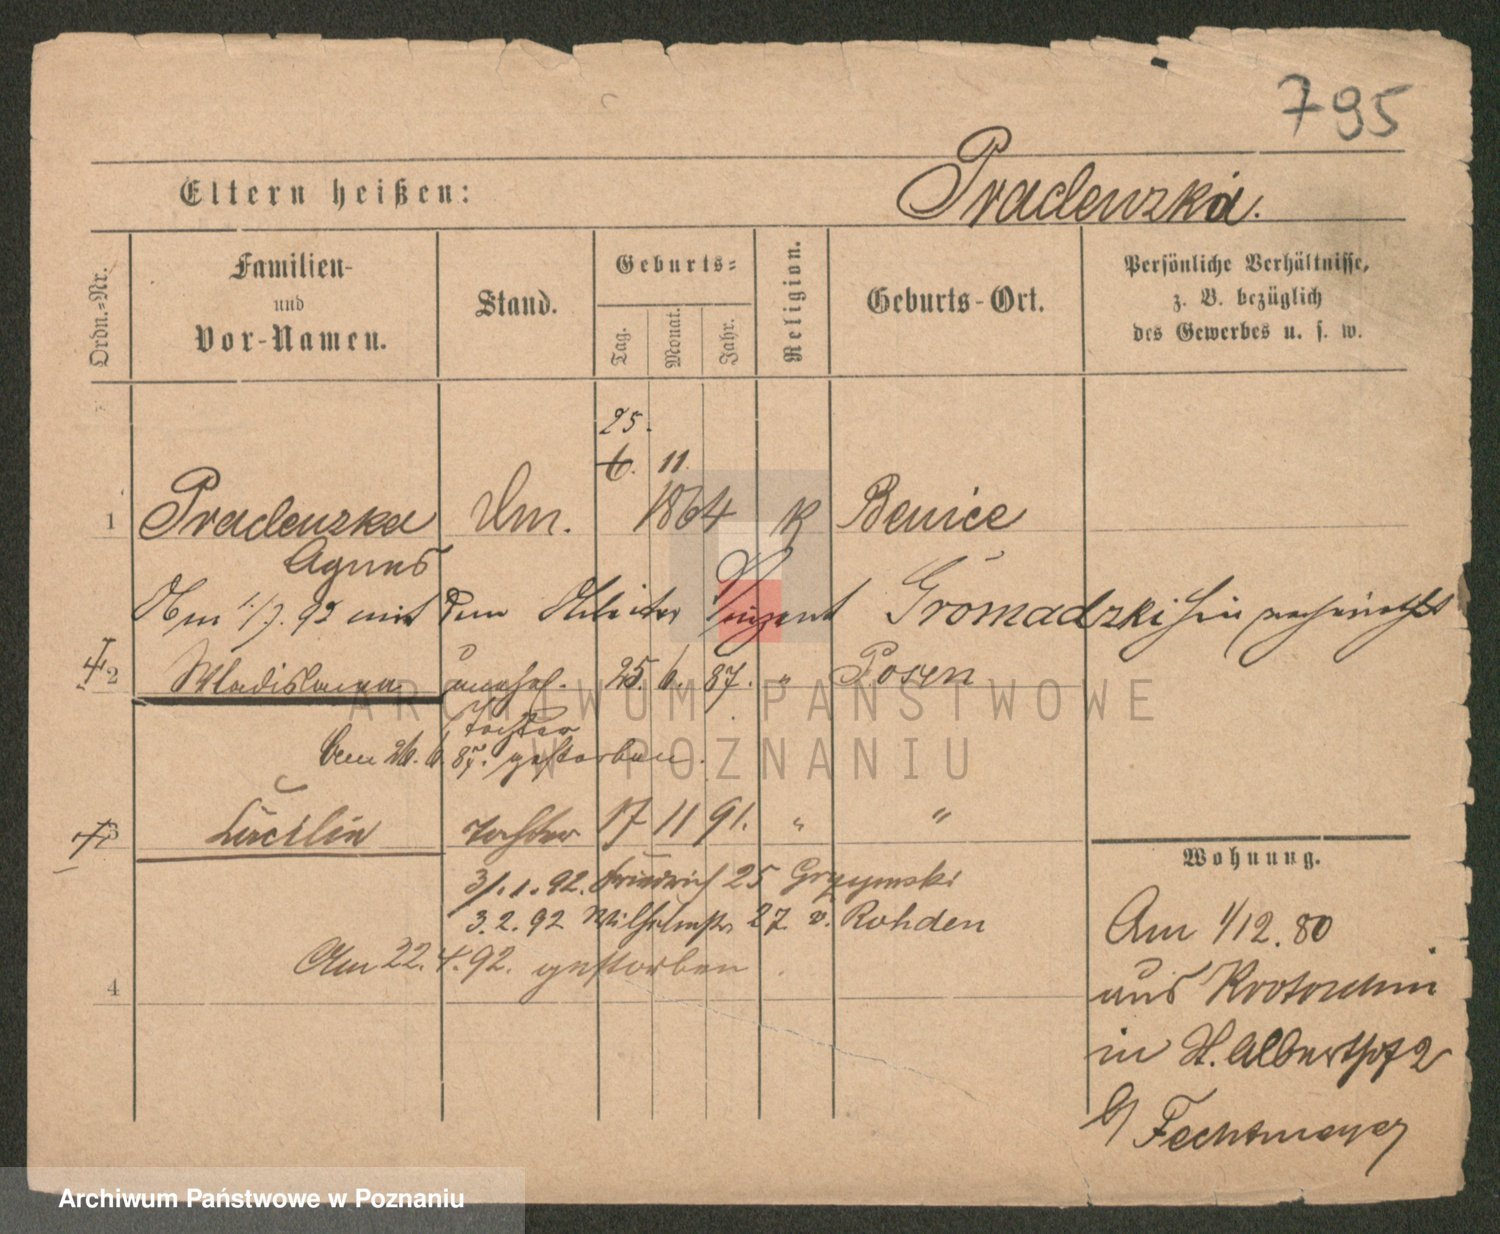 795
Eltern heißen:
Pradenzka.
Ordn.-Nr.
Familien-
und
Vor-Namen.
Stand.
Geburts-
Tag.
Monat.
Jahr.
Religion.
Geburts-Ort.
Persönliche Verhältnisse,
z. B. bezüglich
des Gewerbes u. s. w.
25.
6. 11.
1 Pradenzka 1864 K Benice
Agnes
92 mit dem Arbeiter Vinzent Gromadzki hier
2 Wladislawa unehel. 25. 6. 87. " Posen
Tochter
26. 6. 87. gestorben.
3 Tochter 17 11 91. " "
31.1.92. Friedrich 25 Grzymski
3.2.92 Wilhelmstr 27 v. Rohden
Am 22.4.92. gestorben.
4
Wohnung.
Am 1/12.80
aus Krotoschin
in St. Albertstr 2
b/ Fechtmeyer
ARCHIWUM PAŃSTWOWE
W POZNANIU
Archiwum Państwowe w Poznaniu